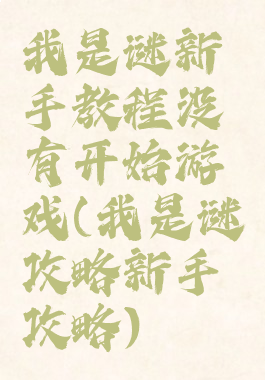 我是谜新
手教程没
有开始游
戏(我是谜
攻略新手
攻略)